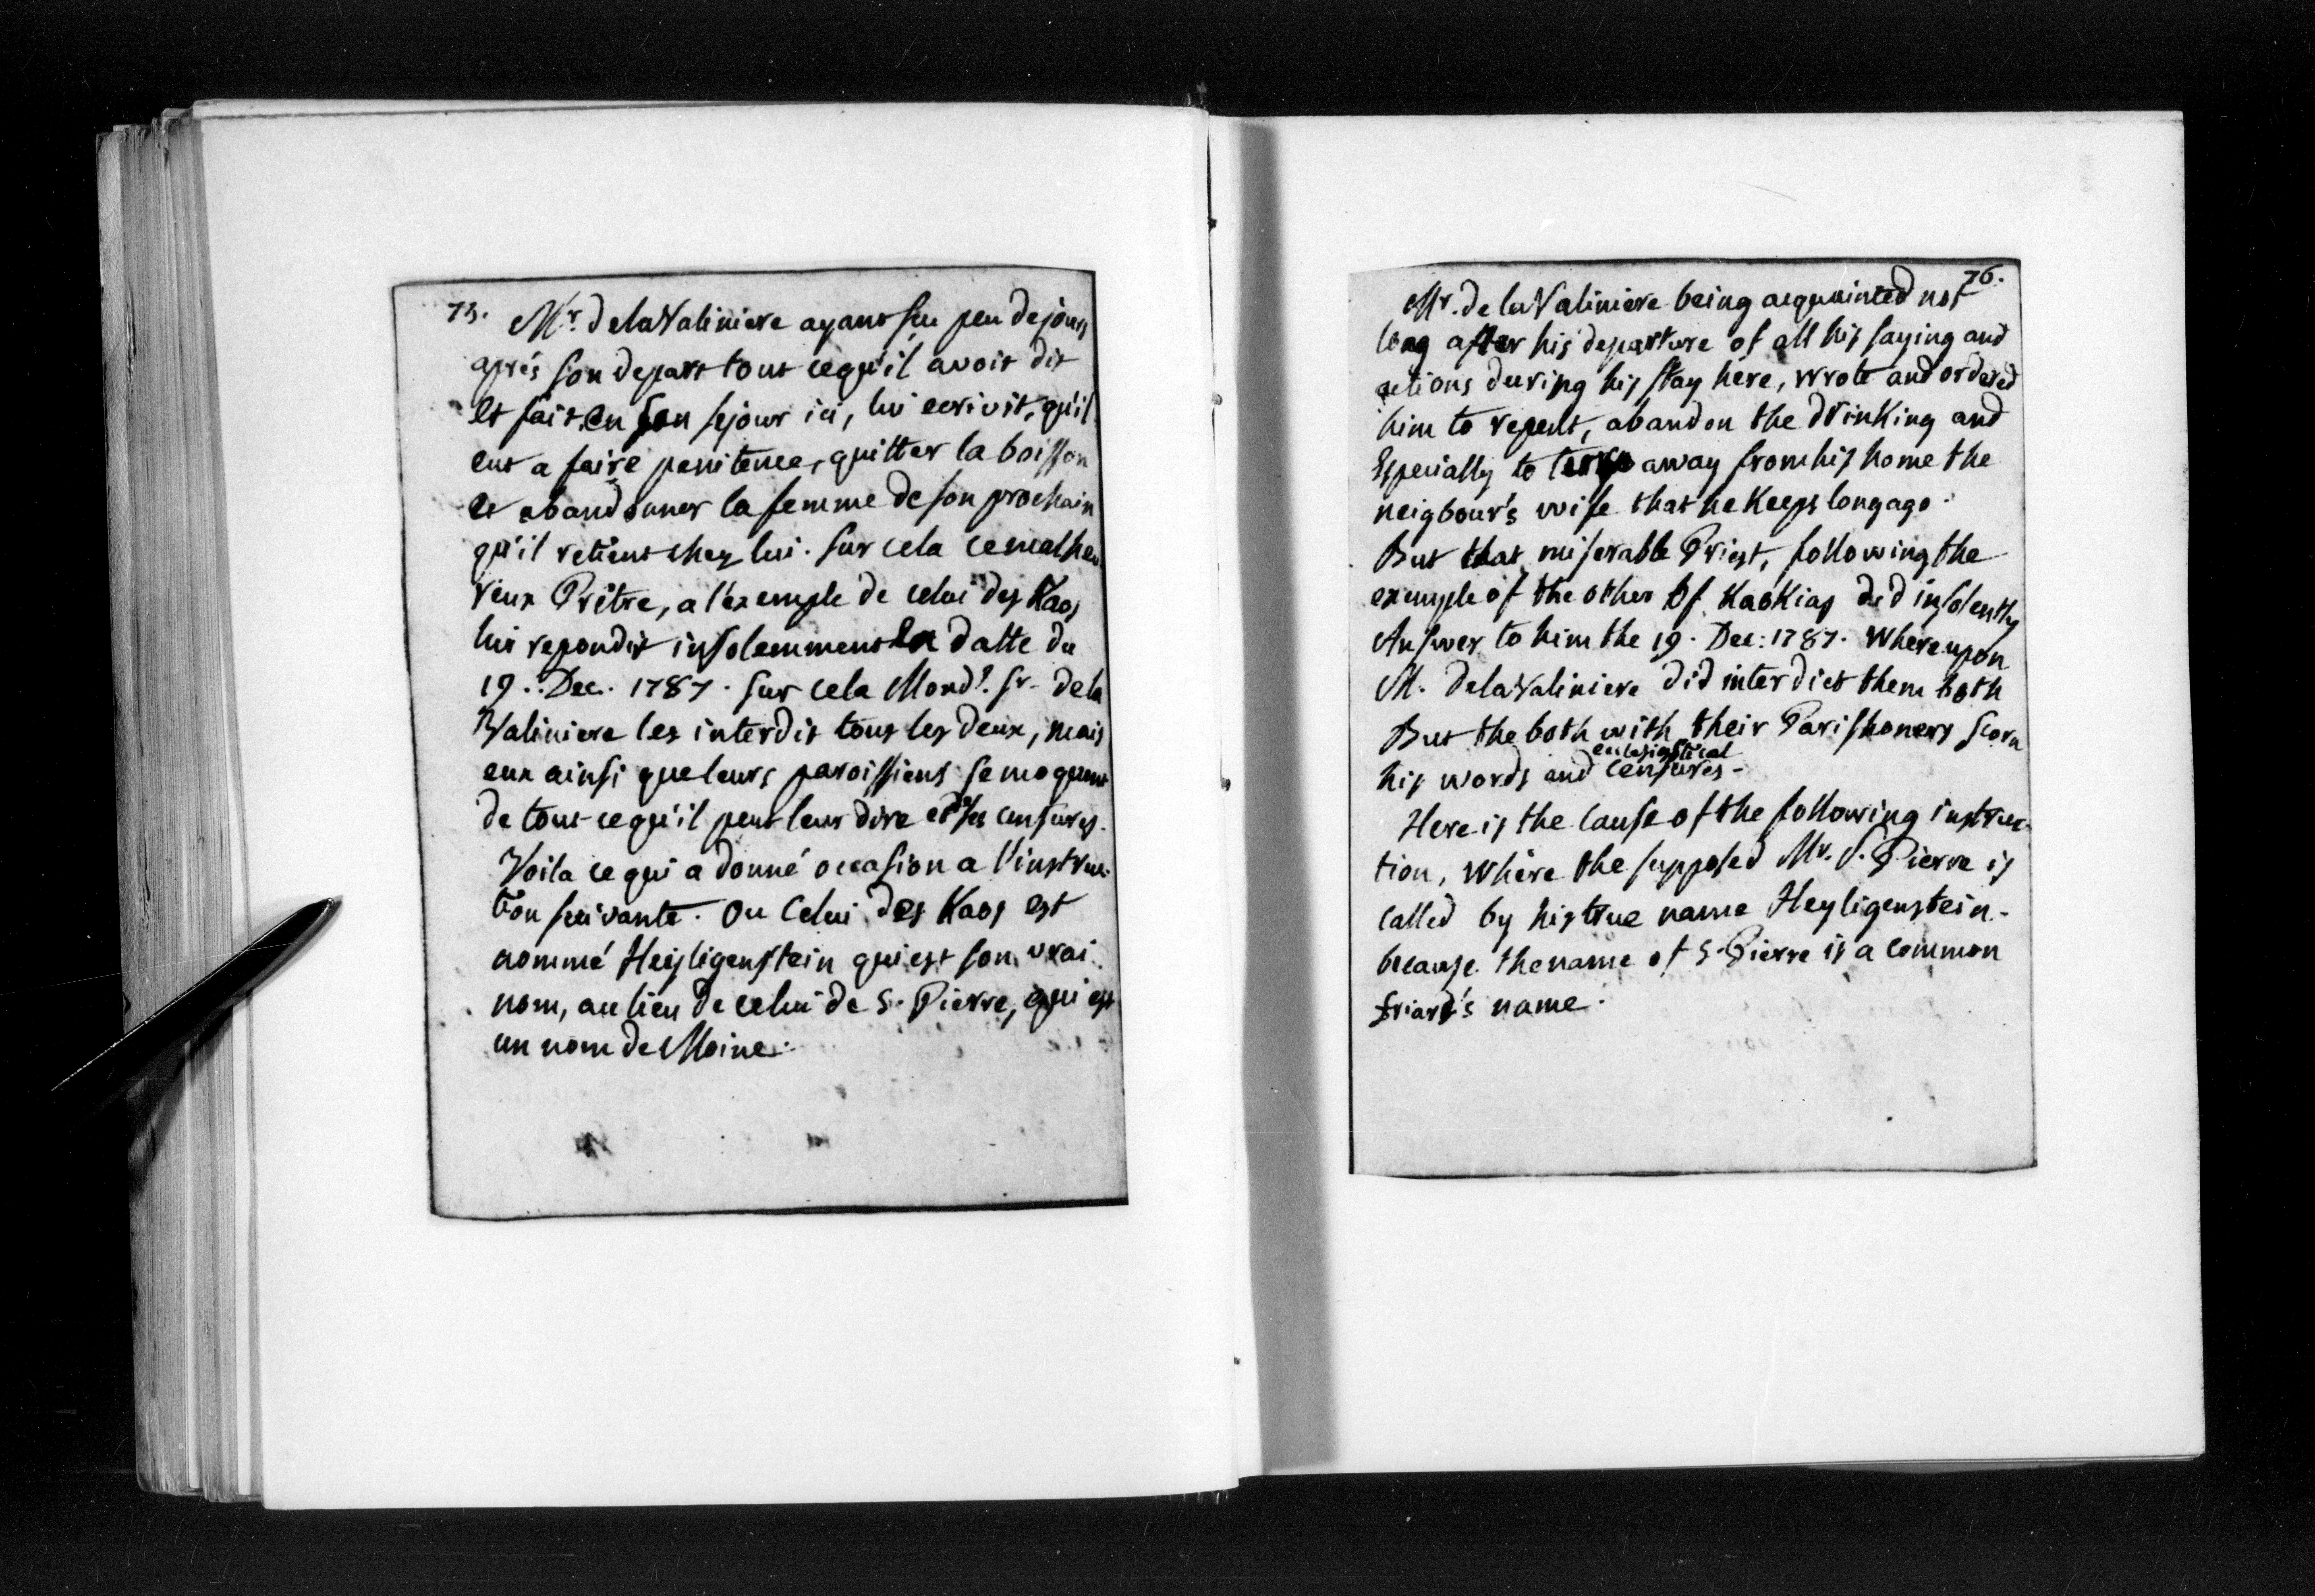 75. Mr. de la Valiniere ayant su peu de jours
aprés son depart tout ce qu'il avoit dit
et fait en son sejour ici, lui ecrivit, qu'il
eut a faire penitence, quitter la boisson
et abandonner la femme de son prochain
qu'il retient chez lui. Sur cela ce malheu
reux Prêtre, a l'exemple de celui des Kaos
lui repondit insolemment en datte du
19. Dec. 1787. Sur cela Mond. Sr. de la
Valiniere les interdit tous les deux, mais
eux ainsi que leurs paroissiens se moquent
de tout ce qu'il peut leur dire et ses censures.
Voila ce qui a donné occasion a l'instruc-
tion suivante. Ou Celui des Kaos est
nommé Heiligenstein qui est son vrai
nom, au lieu de celui de S. Pierre, qui est
un nom de Moine.
76.
Mr. de la Valiniere being acquainted not
long after his departure of all his saying and
actions during his stay here, wrote and ordered
him to repent, abandon the drinking and
Especially to away from his home the
neigbour's wife that he Keeps long ago.
But that miserable Priest, following the
exemple of the other of KaoKias did insolently
Answer to him the 19. Dec: 1787. Whereupon
M. de la Valiniere did interdict them both
But the both with their Parishoners scorn
his words and ecclesiastical censures-
Here is the cause of the following instruc-
tion, Where the supposed Mr. S. Pierre is
called by his true name Heyligenstein-
because the name of S. Pierre is a common
friard's name.